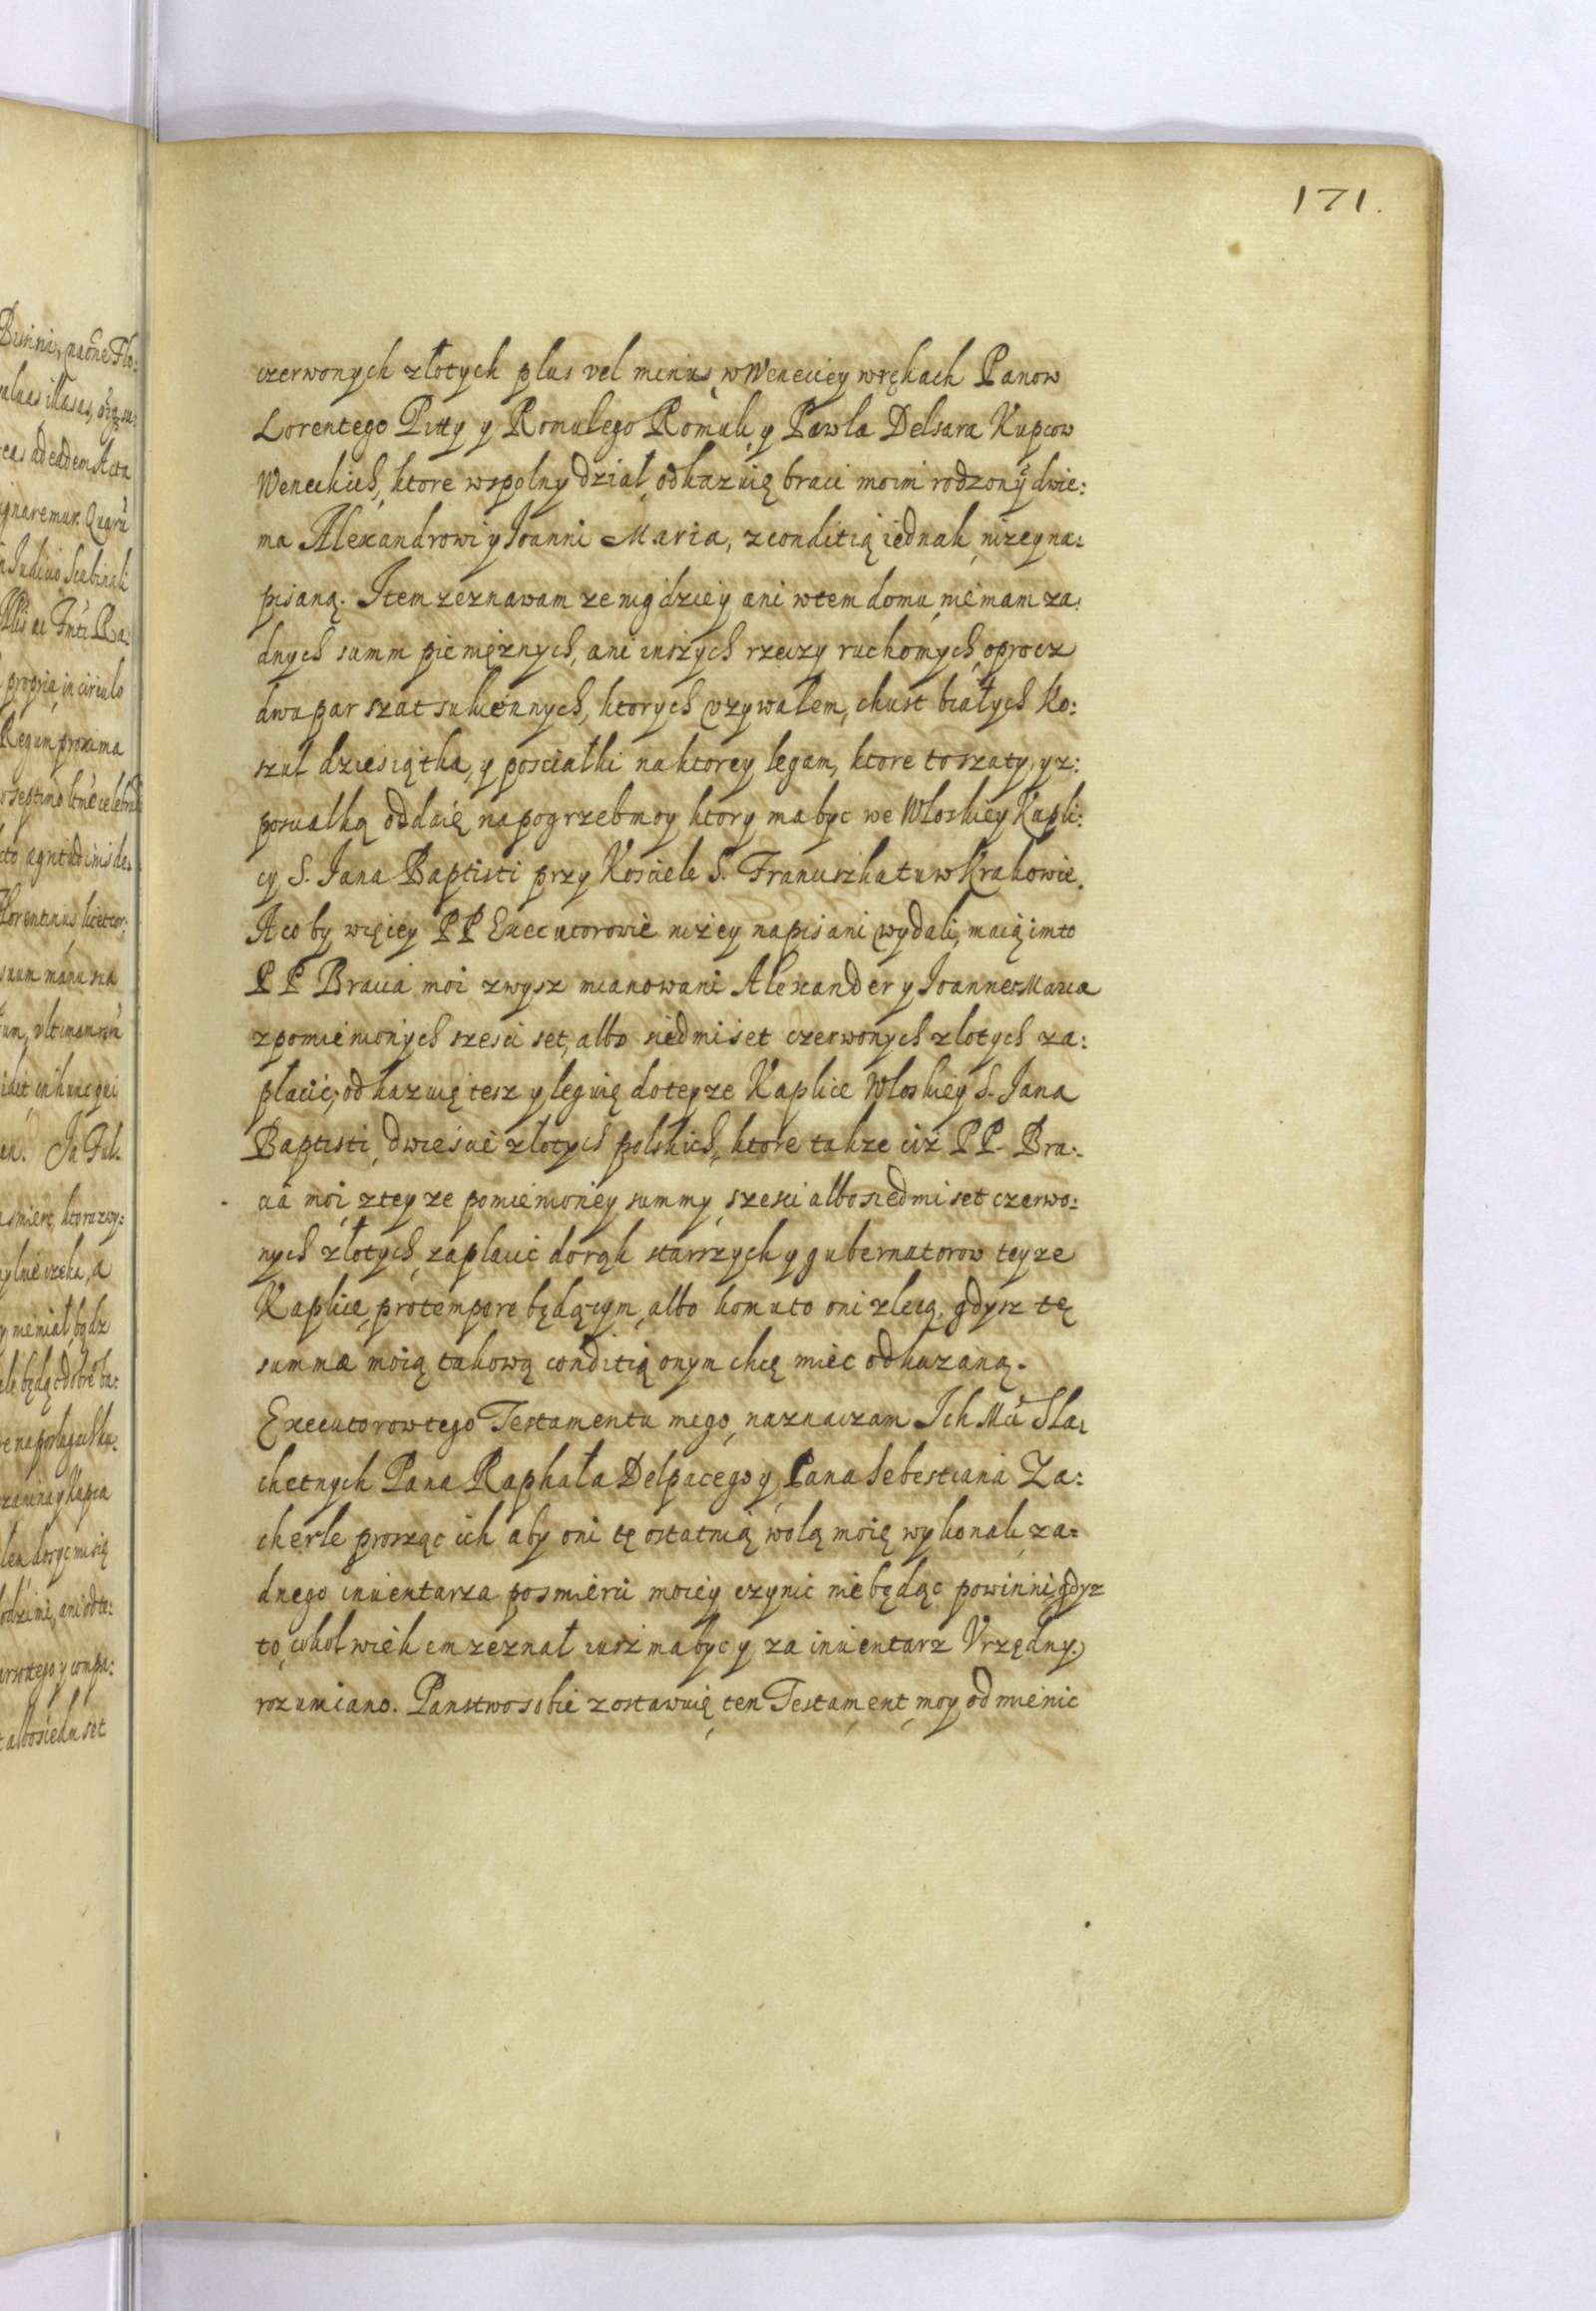 171.
czerwonych złotych plus vel minus, w Weneciey w rękach Panow
Lorentego Pitty y Romulego Romuli y Pawla Delsara Kupcow
Weneckich, ktore wspolny dział, odkazuię braci moim rodzony dwie:
ma Alexandrowi y Joanni Maria, z conditią iednak niżey na:
pisaną. Item zeznawam ze nigdziey ani w tem domu nie mam za:
dnych summ pieniężnych, ani inszych rzeczy ruchomych oprocz
dwu par szat sukiennych, ktorych uzywałem, chust białych ko:
szul dziesiątka, y posciałki na ktorey legam, ktore to szaty y z:
posciałką oddaię na pogrzeb moy ktory ma byc we Włoskiey Kapli:
cy S. Jana Baptisti przy Kosciele S. Franciszka tu w Krakowie.
A co by więcey PP Executorowie niżey napisani wydali, maią im to
PP Bracia moi zwysz mianowani Alexander y Joannes Maria
z pomienionych szesci set, albo siedmi set czerwonych złotych za:
płacic, odkazuię tesz y leguię do teyze Kaplice Włoskiey S. Jana
Baptisti, dwieście złotych polskich, ktore takze ciż PP. Bra:
cia moi z teyze pomienioney summy szesci albo siedmi set czerwo:
nych złotych, zapłacić do rąk starszych y gubernatorow teyze
Kaplice, pro tempore będącym, albo komu to oni zlecą, gdysz tę
summą moią takową conditią onym chcę miec odkazaną.
Executorow tego Testamentu mego, naznaczam Ich Mci Sla:
chetnych Pana Raphała Delpacego y Pana Sebestiana Za:
cherle prosząc ich aby oni tę ostatnią wolą moię wykonali, za:
dnego inwentarza po smierci moiey czynic nie będąc powinni, gdyz
to, cokolwiek em zeznał iusz ma byc y za inwentarz Vrzędny
rozumiano. Panstwo sobie zostawuię ten Testament moy odmienic